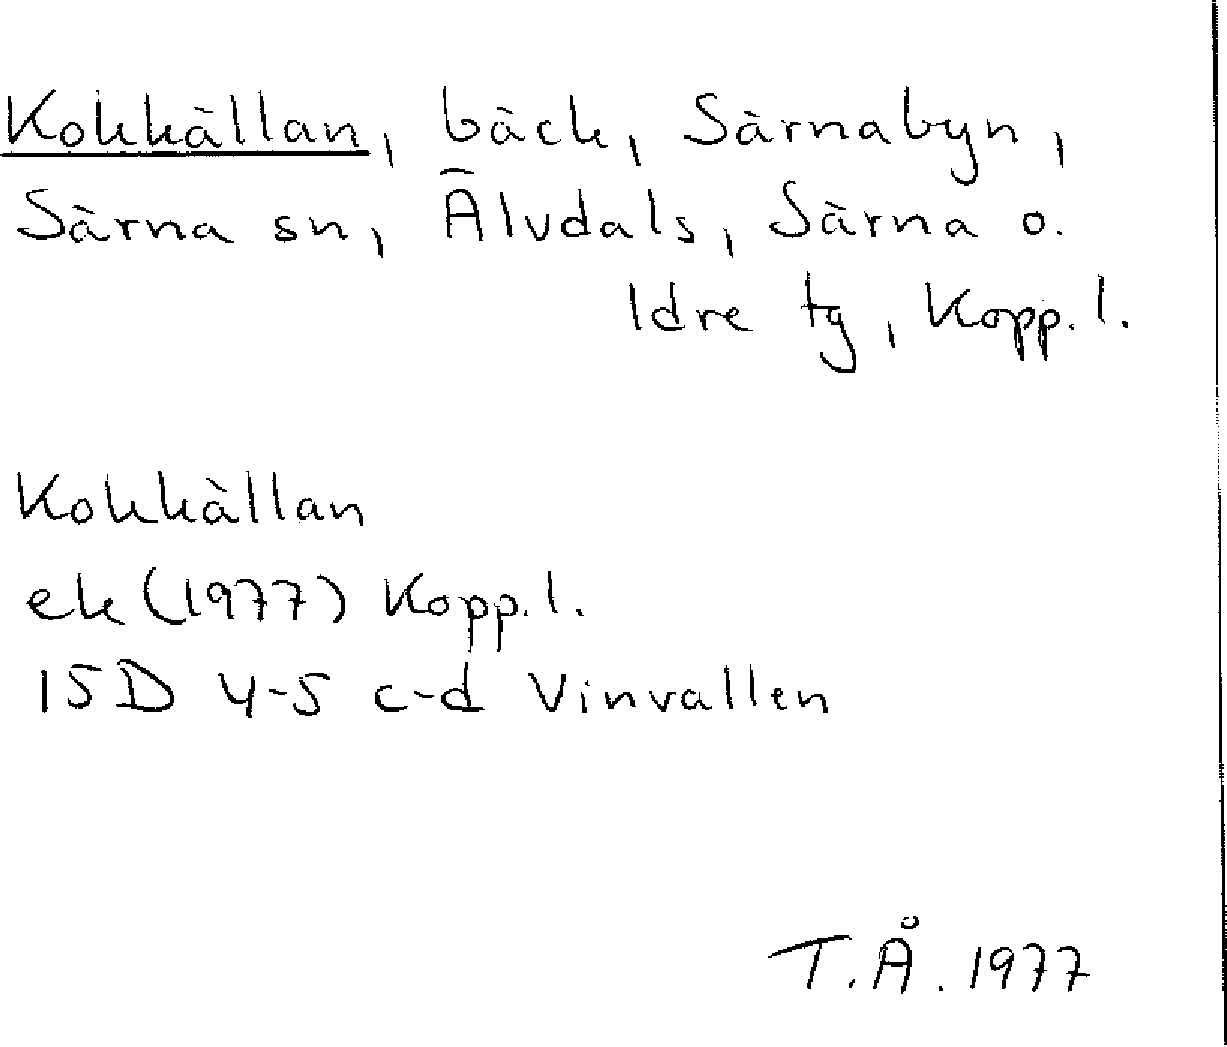 Kokkällan, bäck, Särnabyn,
Särna sn, Älvdals, Särna o.
Idre tg, Kopp. l.
Kokkällan
ek (1977) Kopp. l.
15D 4-5 c-d Vinvallen
T.Å. 1977